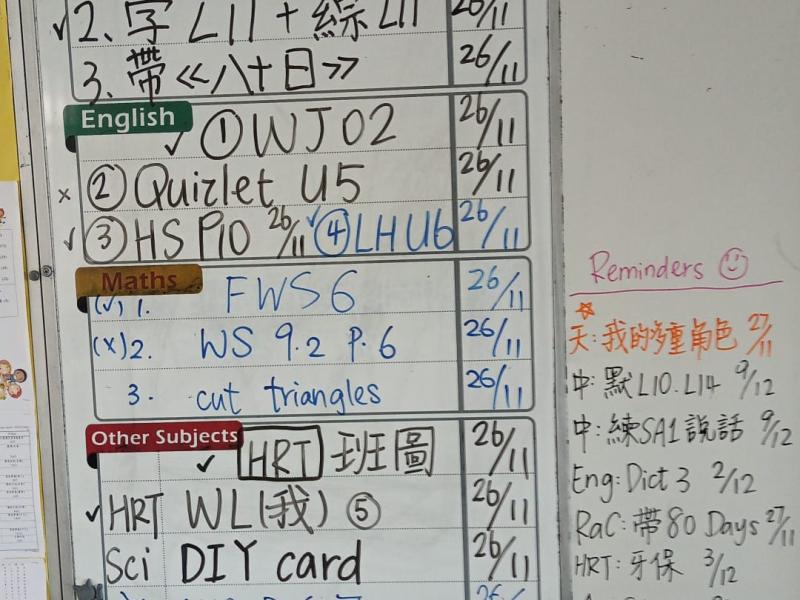 ✓ 2. 字 L11 + 綜 L11 26/11
3. 帶 <<八十日>> 26/11
English
✓ ① WJ02 26/11
x ② Quizlet U5 26/11
✓ ③ HS P10 26/11 ✓ ④ LH U6 26/11
Maths
(✓) 1. FWS 6 26/11
(x) 2. WS 9.2 P.6 26/11
3. cut triangles 26/11
Other Subjects
✓ HRT 班圖 26/11
✓ HRT WL(我) ⑤ 26/11
Sci DIY card 26/11
Reminders ☺
☆
天: 我的多重角色 27/11
中: 默 L10. L14 9/12
中: 練SA1說話 9/12
Eng: Dict 3 2/12
RaC: 帶 80 Days 27/11
HRT: 牙保 3/12